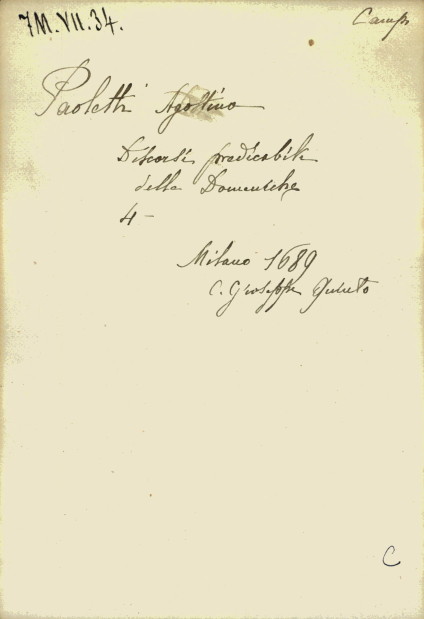 7M.VII.34.
Camp
Paoletti Agostino
Discorsi predicabili
delle Domeniche
4-
Milano 1689
C. Gioseppe Quinto
C